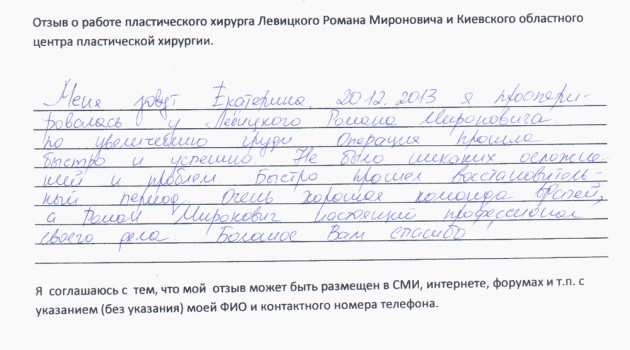 Отзыв о работе пластического хирурга Левицкого Романа Мироновича и Киевского областного
центра пластической хирургии.
Меня зовут Екатерина. 20.12.2013 я проопери-
ровалась у Левицкого Романа Мироновича
по увеличению груди Операция прошла
быстро и успешно. Не было никаких осложне-
ний и проблем Быстро прошел восстановитель-
ный период. Очень хорошая команда врачей,
а Роман Миронович настоящий профессионал
своего дела. Большое Вам спасибо
Я соглашаюсь с тем, что мой отзыв может быть размещен в СМИ, интернете, форумах и т.п. с
указанием (без указания) моей ФИО и контактного номера телефона.